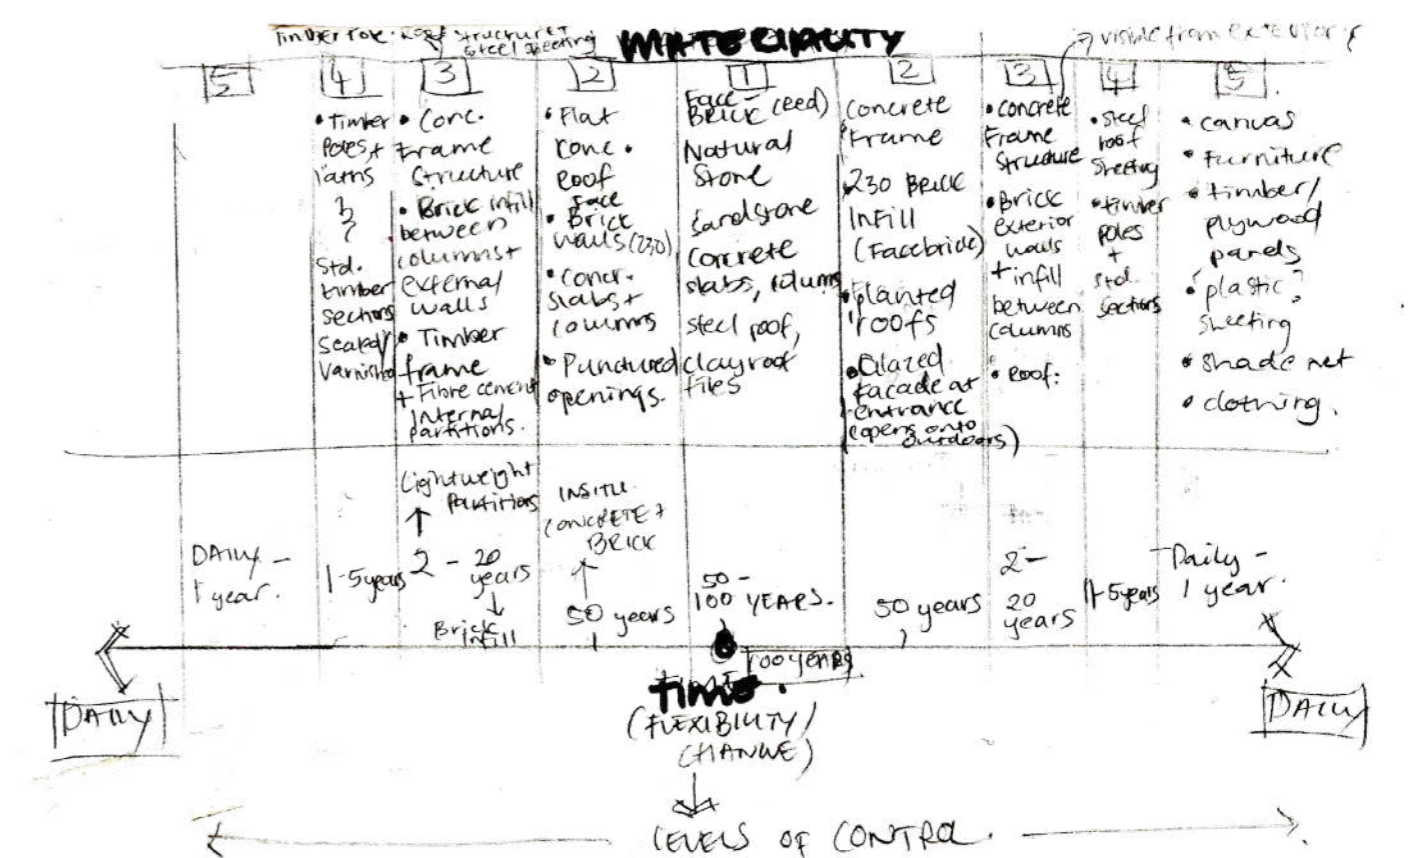 Timber poles. Roof structure +
steel sheeting
MATERIALITY
visible from exterior
5
4
3
2
1
2
3
4
5
• Timber
Poles +
laths
Std.
timber
sections
sealed/
varnished
• Conc.
Frame
Structure
• Brick infill
between
columns +
external
walls
• Timber
frame
+ Fibre cement
Internal
partitions.
• Flat
conc.
Roof
• Face
Brick
walls (230)
• Concr.
slabs +
columns
• Punctured
openings.
Face-
BRICK (Red)
Natural
Stone
Sandstone
Concrete
slabs, colums
steel roof,
clay roof
tiles
Concrete
Frame
230 BRICK
INFILL
(Facebrick)
• Planted
roofs
• Glazed
facade at
entrance
(opens onto
outdoors)
• concrete
Frame
Structure
• Brick
exterior
walls
+ infill
between
columns
• Roof:
• Steel
roof
Sheeting
• timber
poles
+
std.
sections
• canvas
• Furniture
• timber/
plywood
panels
• plastic?
sheeting
• shade net
• clothing.
DAILY -
1 year.
1-5years
Lightweight
Partitions
2 - 20
years
Brick
infill
INSITU
CONCRETE +
BRICK
50 years
50 -
100 YEARS.
50 years
2 -
20
years
1-5years
Daily -
1 year.
100 YEARS
DAILY
TIME.
DAILY
(FLEXIBILITY/
CHANGE)
LEVELS OF CONTROL.